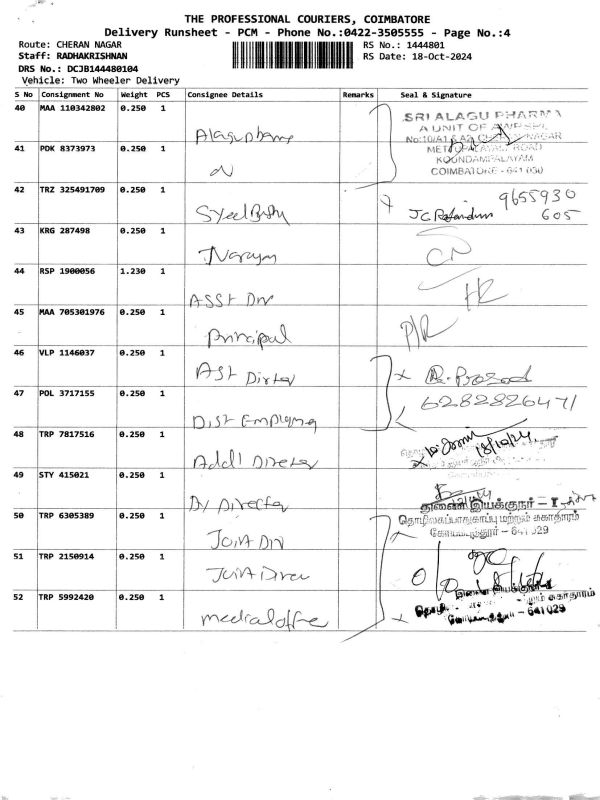 THE PROFESSIONAL COURIERS, COIMBATORE
Delivery Runsheet - PCM - Phone No.:0422-3505555 - Page No.:4
Route: CHERAN NAGAR RS No.: 1444801
Staff: RADHAKRISHNAN RS Date: 18-Oct-2024
DRS No.: DCJB144480104
Vehicle: Two Wheeler Delivery
S No Consignment No Weight PCS Consignee Details Remarks Seal & Signature
40 MAA 110342802 0.250 1
SRI ALAGU PHARMA
A UNIT OF
41 PDK 8373973 0.250 1
METTUPALAYAM ROAD
KOUNDAMPALAYAM
COIMBATORE - 641 030
42 TRZ 325491709 0.250 1
9655930
605
43 KRG 287498 0.250 1
Narayan
CN
44 RSP 1900056 1.230 1
Asst Dir
HR
45 MAA 705301976 0.250 1
Principal
P/R
46 VLP 1146037 0.250 1
Ast
Prasad
47 POL 3717155 0.250 1
6282826471
Dist
48 TRP 7817516 0.250 1
18/10/24
Addl Director
49 STY 415021 0.250 1
Dy Director
துணை இயக்குநர் – I
50 TRP 6305389 0.250 1
தொழிலகப்பாதுகாப்பு மற்றும் சுகாதாரம்
கோயமுத்தூர் – 641 029
Joint Dir
51 TRP 2150914 0.250 1
Joint
52 TRP 5992420 0.250 1
சுகாதாரம்
– 641 029
medical office